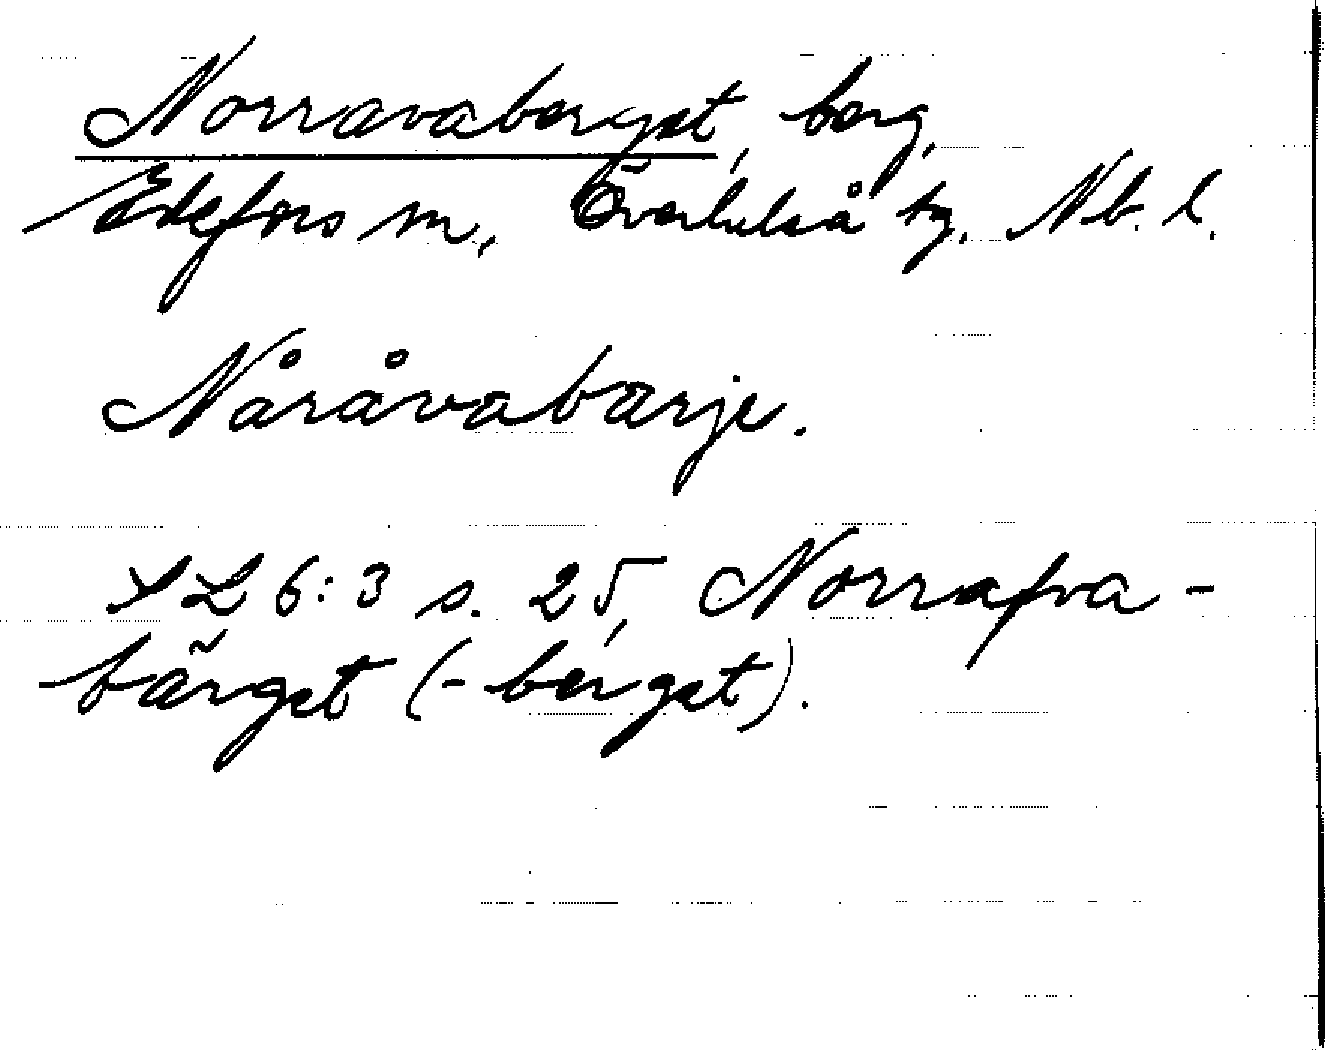 Norravaberget, berg,
Edefors sn, Överluleå tg. Nb. l.
Nåråvabarje.
SL 6:3 s. 25, Norrafva-
bärget (-berget).